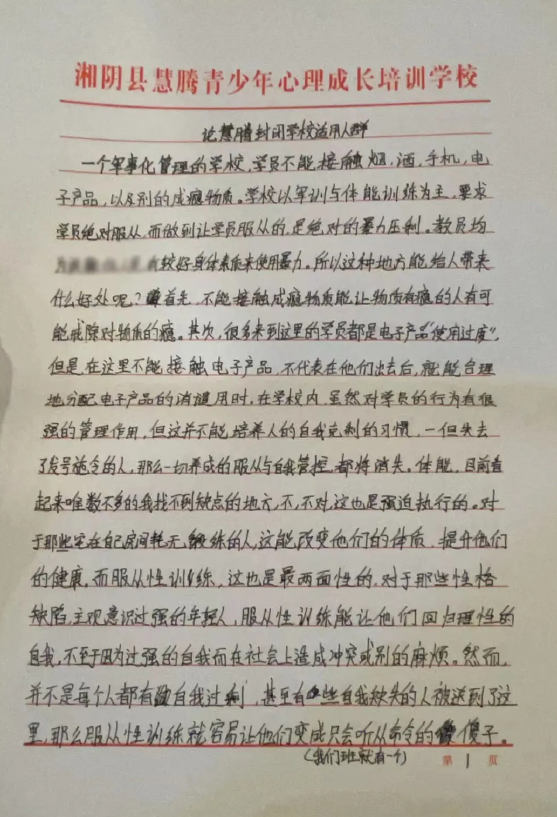 湘阴县慧腾青少年心理成长培训学校
论慧腾封闭学校适用人群
一个军事化管理的学校,学员不能接触烟,酒,手机,电
子产品,以及别的成瘾物质。学校以军训与体能训练为主,要求
学员绝对服从,而做到让学员服从的,是绝对的暴力压制。教员均
较好身体素质来使用暴力。所以这种地方能给人带来
什么好处呢?首先,不能接触成瘾物质能让物质有瘾的人有可
能戒除对物质的瘾。其次,很多来到这里的学员都是电子产品“使用过度”,
但是,在这里不能接触电子产品,不代表在他们出去后,就能合理
地分配电子产品的消遣用时,在学校内,虽然对学员的行为有很
强的管理作用,但这并不能培养人的自我克制的习惯,一但失去
了发号施令的人,那么一切养成的服从与自我管控,都将消失。体能,目前看
起来唯数不多的我找不到缺点的地方,不,不对,这也是强迫执行的。对
于那些宅在自己房间耗无锻练的人,这能改变他们的体质,提升他们
的健康。而服从性训练,这也是最两面性的,对于那些性格
缺陷,主观意识过强的年轻人,服从性训练能让他们回归理性的
自我,不至于因为过强的自我而在社会上造成冲突或别的麻烦。然而,
并不是每个人都有自我过剩,甚至有些自我缺失的人被送到了这
里,那么服从性训练就容易让他们变成只会听从命令的傻子。
(我们班就有一个)
第 1 页